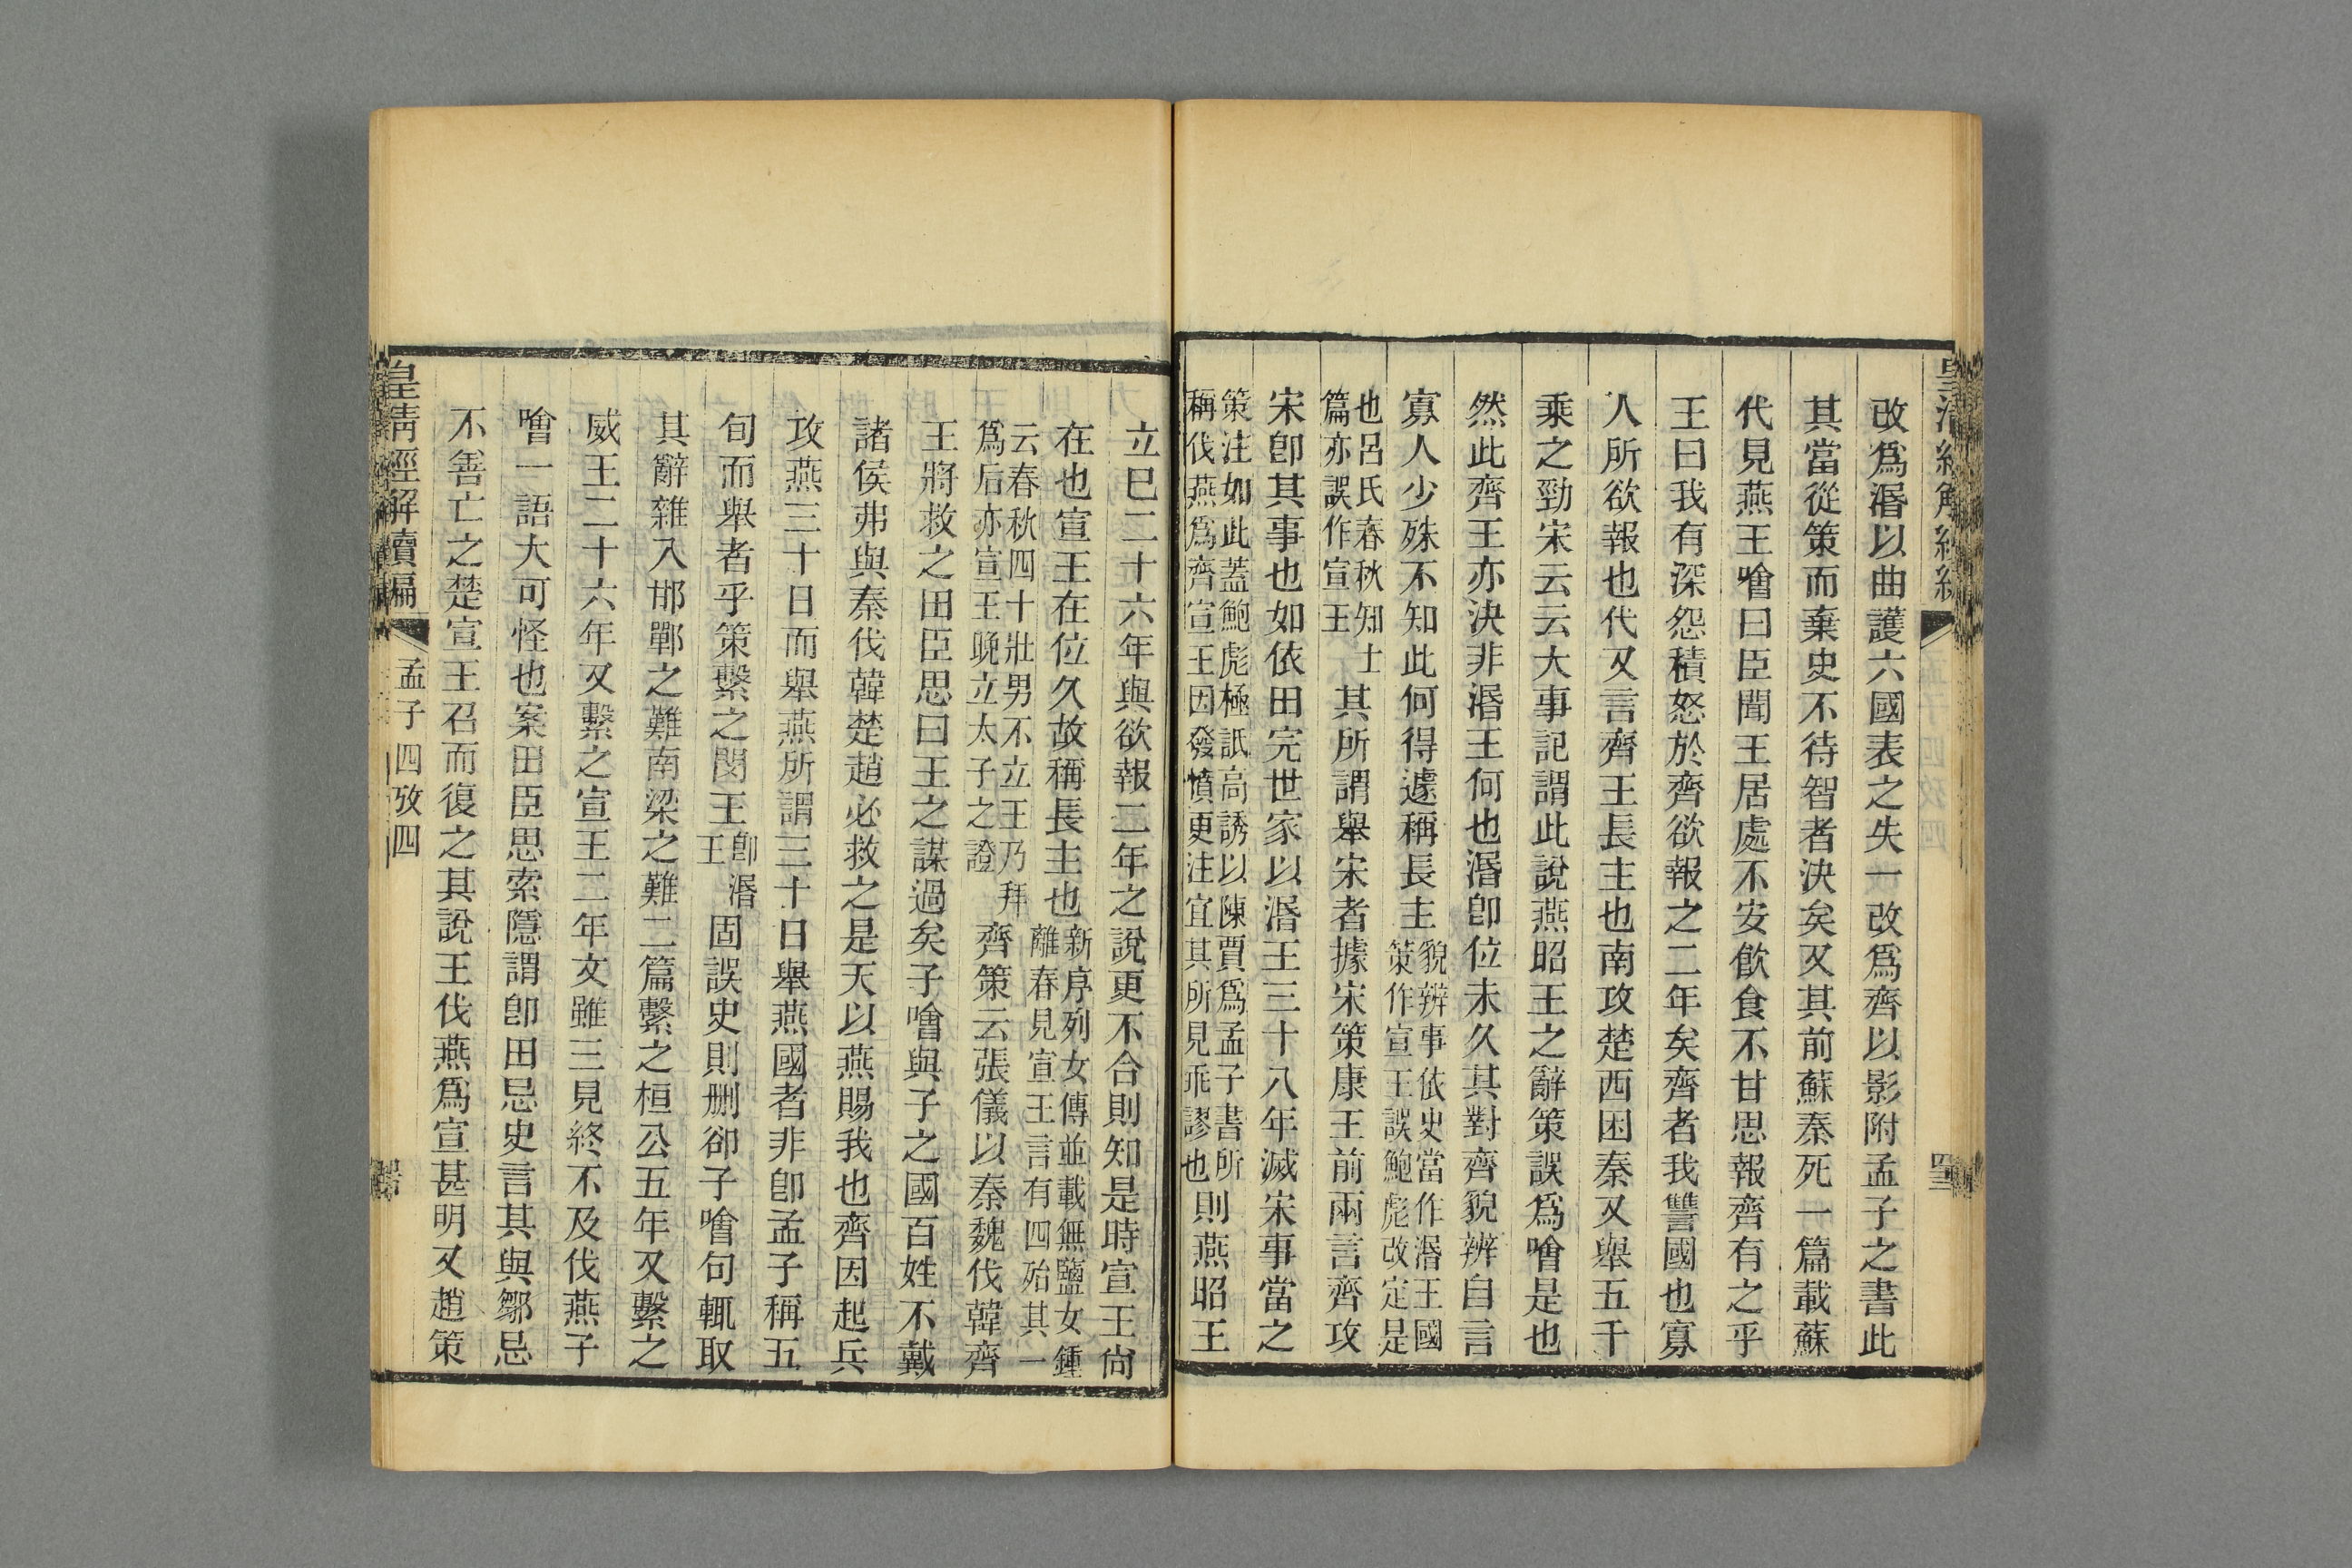 改爲湣以曲護六國表之失一改爲齊以影附孟子之書此
其當從策而棄史不待智者決矣又其前蘇秦死一篇載蘇
代見燕王噲曰臣聞王居處不安飮食不甘思報齊有之乎
王曰我有深怨積怒於齊欲報之二年矣齊者我讐國也寡
人所欲報也代又言齊王長主也南攻楚西困秦又舉五千
乘之勁宋云云大事記謂此說燕昭王之辭策誤爲噲是也
然此齊王亦決非湣王何也湣卽位未久其對齊貌辨自言
寡人少殊不知此何得遽稱長主貌辨事依史當作湣王國
策作宣王誤鮑彪改定是
也呂氏春秋知士
篇亦誤作宣王其所謂舉宋者據宋策康王前兩言齊攻
宋卽其事也如依田完世家以湣王三十八年滅宋事當之
策注如此蓋鮑彪極詆高誘以陳賈爲孟子書所
稱伐燕爲齊宣王因發憤更注宜其所見乖謬也則燕昭王
立巳二十六年與欲報二年之說更不合則知是時宣王尙
在也宣王在位久故稱長主也新序列女傳並載無鹽女鍾
離春見宣王言有四殆其一
云春秋四十壯男不立王乃拜
爲后亦宣王晚立太子之證齊策云張儀以秦魏伐韓齊
王將救之田臣思曰王之謀過矣子噲與子之國百姓不戴
諸侯弗與秦伐韓楚趙必救之是天以燕賜我也齊因起兵
攻燕三十日而舉燕所謂三十日舉燕國者非卽孟子稱五
旬而舉者乎策繫之閔王卽湣
王固誤史則删卻子噲句輒取
其辭雜入邯鄲之難南梁之難二篇繫之桓公五年又繫之
威王二十六年又繫之宣王二年文雖三見終不及伐燕子
噲一語大可怪也案田臣思索隱謂卽田忌史言其與鄒忌
不善亡之楚宣王召而復之其說王伐燕爲宣甚明又趙策
皇淸經解續編
孟子四攷四